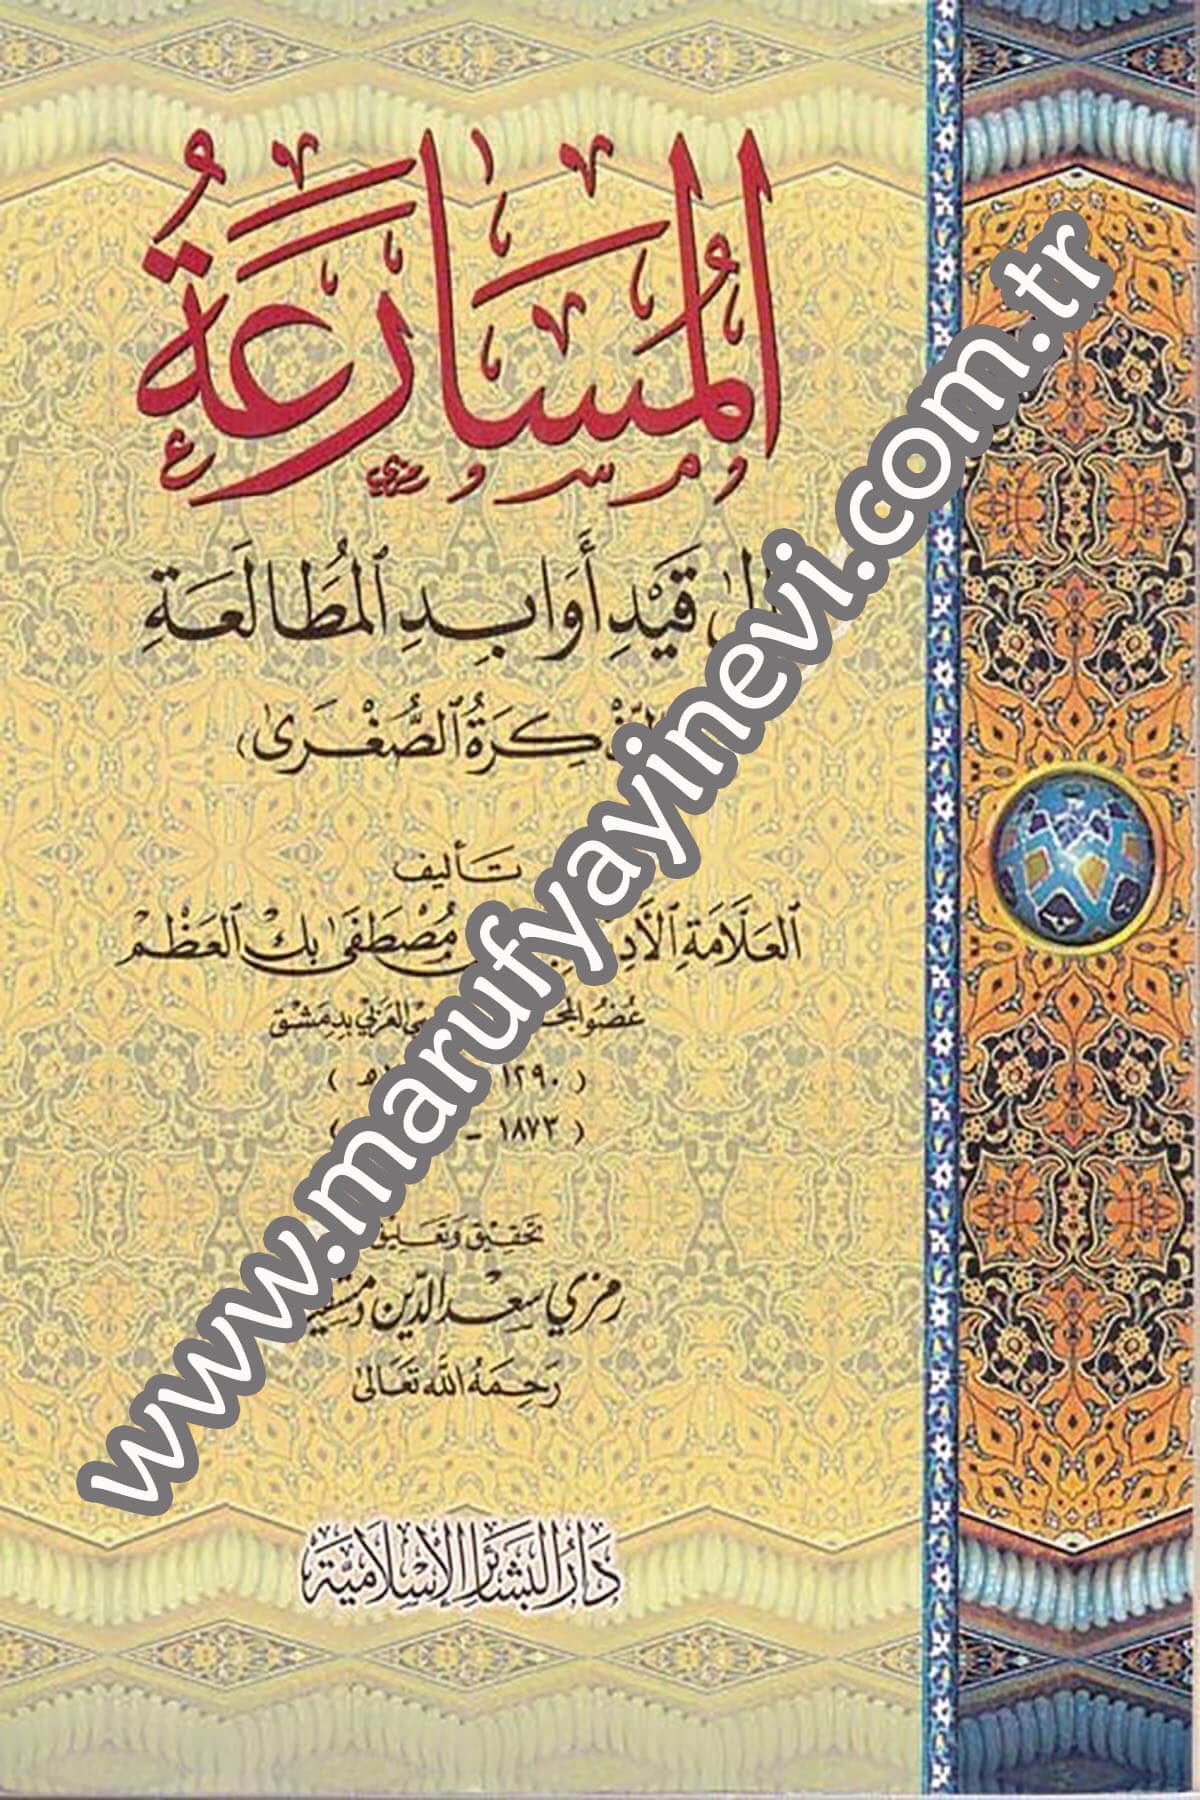 المسارعة
قيد أوابد المطالعة
الصغرى)
تأليف
العلامة مصطفى بك العظم
عضو العربي بدمشق
( ١٢٩٠ هـ )
( ١٨٧٣ - )
تحقيق وتعليق
رمزي سعد الدين دمشقية
رحمه الله تعالى
دار البشائر الإسلامية
www.marufyayinevi.com.tr